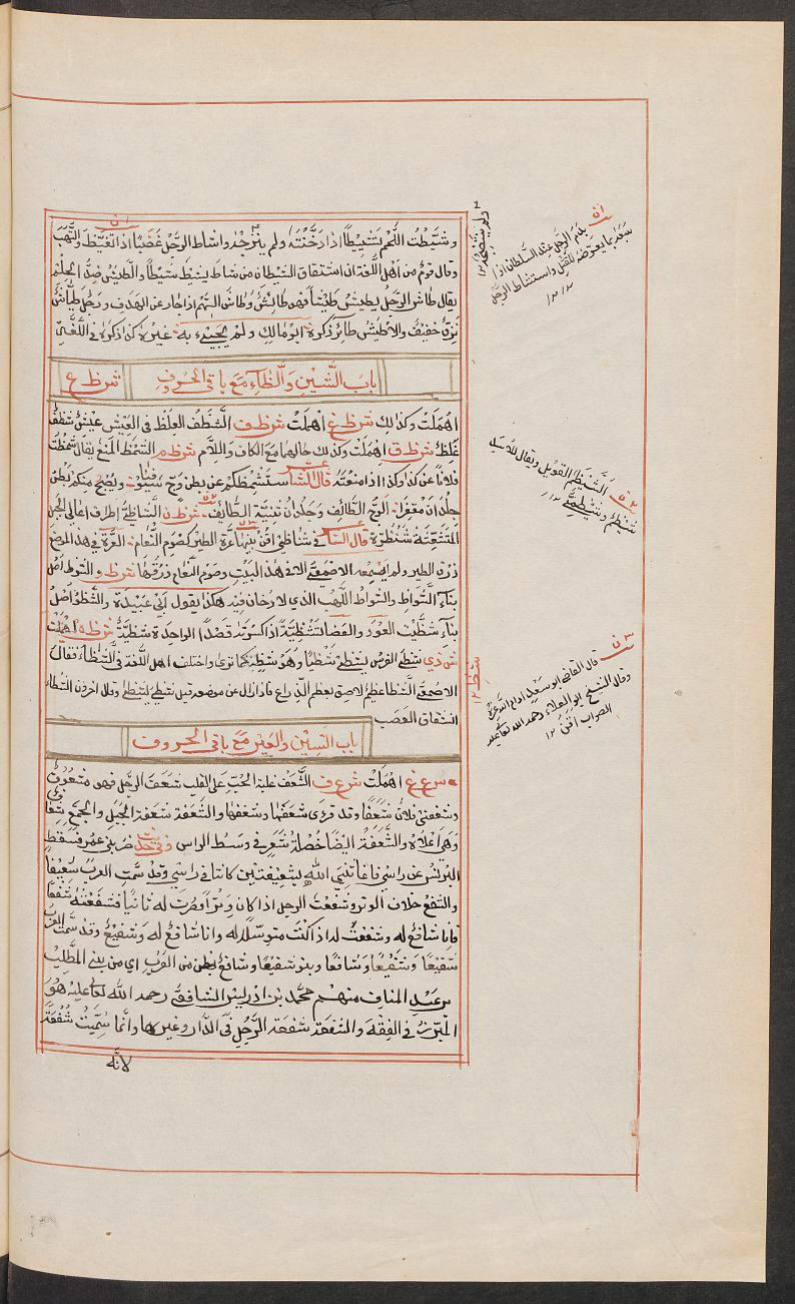 وشيَّطت اللَّحم تشييطًا اذا دخَّنته ولم ينضجه واشاط الرجل غضبًا اذا تغيّظ والتهب
وقال قوم من اهل اللّغة ان اشتقاق الشيطان من شاط يشيط شيطًا والطيش ضدّ الحلم
يقال طاش الرجل يطيش طيشًا فهو طائش وطاش السّهم اذا جار عن الهدف ورجل طيّاش
نزق خفيف والاطيش طائر ذكره ابو مالك ولم يجيء به غيره كذا ذكره في اللغتين
باب الشين والظاء مع باقي الحروف
ش ظ ع
اهملت وكذلك ش ظ غ اهملت ش ظ ف الشظف الغلظ في العيش عيش شظف
غلظ ش ظ ق اهملت وكذلك حالهما مع الكاف واللام ش ظ م الشمظ المنع يقال شمظت
فلانا عن كذا وكذا اذا منعته قال الشاعر ستشمظكم عن بطن وجّ سيوفنا ويصبح منكم بطن
جلدان مقفرا وجّ الطائف وجلدان ثنية الطائف ش ظ ن الشناظي اطراف اعالي الجبل
المتشعّثة شنظوة قال الشاعر في شناظي اقن بينها عرّة الطير كصوم النعام العرّة في هذا الموضع
ذرق الطير ولم يسمعه الاصمعي الا في هذا البيت وصوم النعام ذرقها ش ظ و الشوظ اصل
بناء الشُواظ والشِواظ اللّهب الذي لا دخان فيه هكذا يقول ابي عبيدة والشظو اصل
بناء شظّيت العود والعصا تشظية اذا كسرته قصدًا الواحدة شظيّة ش ظ ه اهملت
ش ظ ي شظي الفرس يشظى شظيًا وهو شظٍ كما ترى واختلف اهل اللغة في الشظاء فقال
الاصمعي الشظا عظيم لاصق بعظم الذراع فاذا زال عن موضعه قيل شظي يشظى وقال اخرون الشظاء
انشقاق العصب
باب الشين والعين مع باقي الحروف
ش ع غ اهملت ش ع ف الشعف غلبة الحب على القلب شعف الرجل فهو مشعوف
وشعفني فلان شعفًا وقد قرئ شعفها وشغفها والشعفة شعفة الجبل والجمع شعاف
وهي اعلاه والشعفة ايضا خصلة شعر في وسط الراس وفي حديث ضربني عمر فسقط
البرنس عن راسي فاغاثني الله بشعيفتين كانتا في راسي وقد سمّت العرب شعيفا
والشفع خلاف الوتر وشفعت الرجل اذا كان وترًا فصرت له ثانيًا فشفعته شفعًا
فانا شافع له وشفعت له اذا كنت متوسّلا له وانا شافع له وشفيع وقد سمّت العرب
شفيعًا وشُفيعًا وشافعًا وبنو شفيع وبنو شافع بطن من العرب اي من بني المطلب
بن عبد المناف منهم محمد بن ادريس الشافعي رحمه الله تعالى عليه هو
المبرّز في الفقه والشفعة شفعة الرجل في الدار وغيرها وانما سمّيت شفعة
لانّه
الرجل عند السلطان اذا
سعى به
للقتل واستشاط الرجل
الشنظم الطويل ويقال للاسد
شيظم وشيظمي
قال القاضي ابو سعيد
وقال الشيخ ابو العلاء رحمه الله تعالى عليه
الصواب اقن